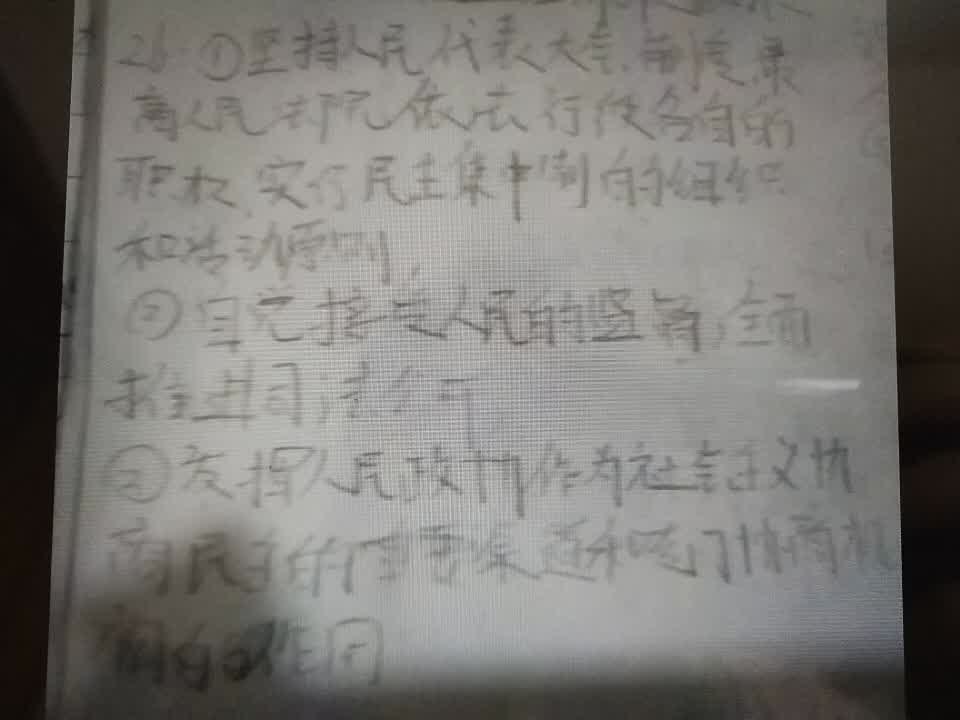 26 ①坚持人民代表大会制度,最
高人民法院依法行使各自的
职权,实行民主集中制的组织
和活动原则,
②自觉接受人民的监督,全面
推进司法公开
③发挥人民政协作为社会主义协
商民主的重要渠道和专门协商机
构的作用